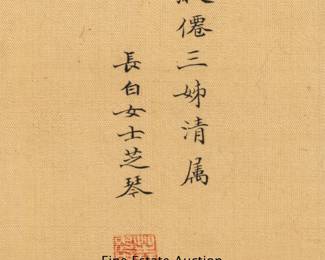 僊三姊清属
長白女士芝琴
Fine Estate Auction